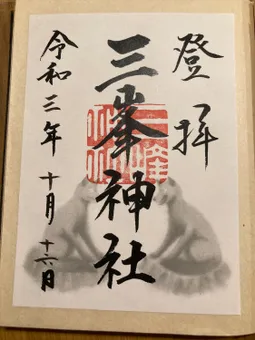 登拝
三峯神社
令和三年 十月 十六日